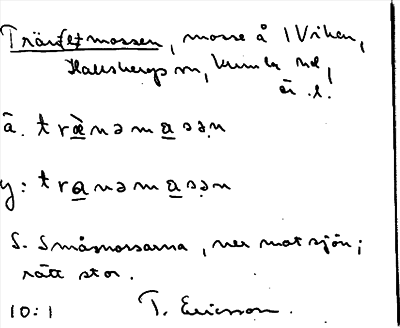 Trän(e)mossen, mosse å 1 Viken,
Hallsbergs sn, Kumla hd,
Ör. l.
ā. trànəmasən
y: tranəmasən
S. Småmossarna, ner mot sjön;
rätt stor.
10:1 T. Ericsson.